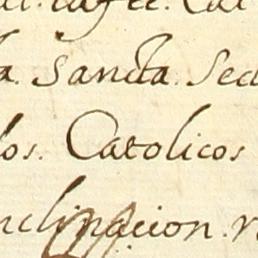 la. Sancta. Sed
los. Catolicos
nclinacion. r